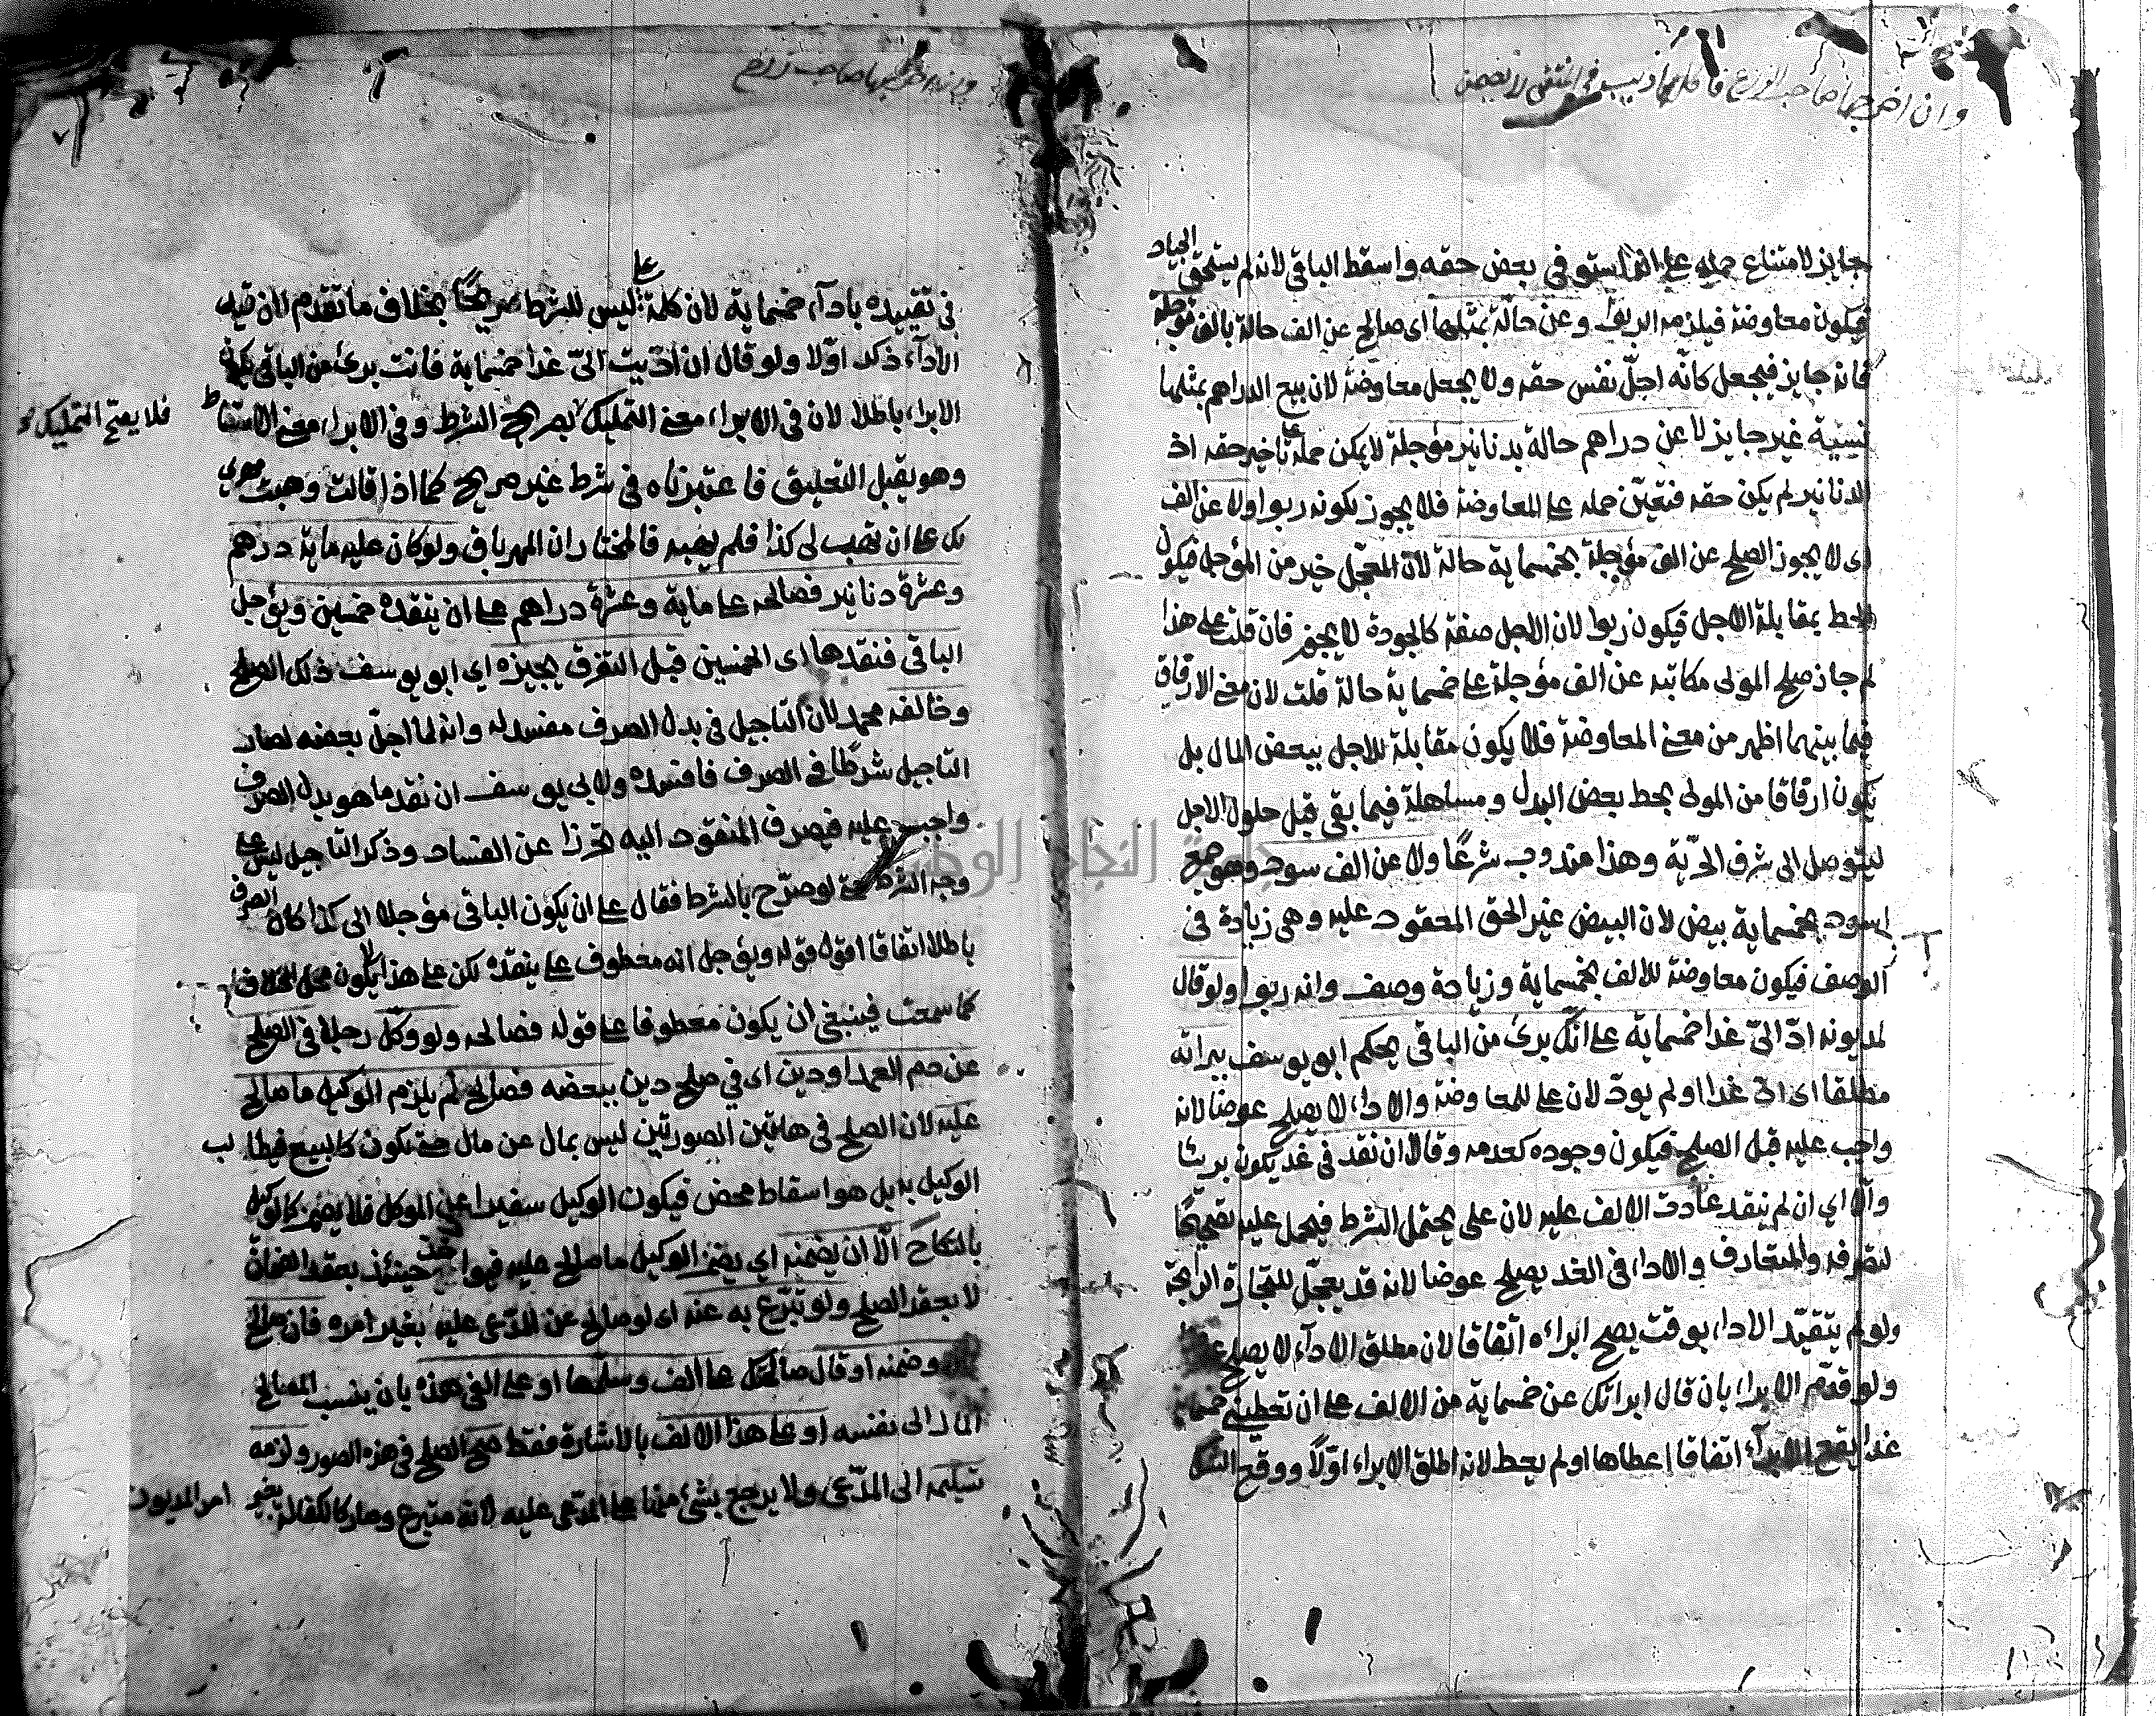 وان اخرجها صاحب الزرع فأكلها ذيب في المنتقى لا يضمن
جايز لامتناع حمله على انه استوفى بعض حقه واسقط الباقي لانه لم يستحق الجياد
فيكون معاوضة فيلزمه الربوا وعن حالّة بمثلها اى صالح عن الف حالة بالف مؤجلة
فانه جايز فيجعل كانّه اجلّ نفس حقه ولا يجعل معاوضة لان بيع الدراهم بمثلها
نسيّة غير جايز لا عن دراهم حالة بدنانير مؤجلة لا يمكن حمله على تأخير حقه اذ
الدنانير لم يكن حقه فتعيّن حمله على المعاوضة فلا يجوز لكونه ربوا ولا عن الف
اى لا يجوز الصلح عن الف مؤجلة بخمسماية حالة لان المعجّل خير من المؤجل فيكون
الحط بمقابلة الاجل فيكون ربوا لان الاجل صفة كالجودة لا يجوز فان قلت على هذا
لم جاز صلح المولى مكاتبه عن الف مؤجلة على خمسماية حالة قلت لان معنى الارفاق
فيما بينهما اظهر من معنى المعاوضة فلا يكون مقابلة للاجل ببعض المال بل
يكون ارفاقا من المولى بحط بعض البدل ومساهلة فيما بقى قبل حلول الاجل
ليتوصل الى شرف الحرّية وهذا مندوب شرعًا ولا عن الف سود وهو جمع
اسود بخمسماية بيض لان البيض غير الحق المعقود عليه وهى زيادة في
الوصف فيكون معاوضة للالف بخمسماية وزيادة وصف وانه ربوا ولو قال
لمديونه ادّ الىّ غدا خمسماية على انّك برئ من الباقي يحكم ابو يوسف ببراته
مطلقا اى ادّى غدا او لم يودّ لان على للمعاوضة والاداء لا يصلح عوضًا لانه
واجب عليه قبل الصلح فيكون وجوده كعدمه وقالا ان نقد فى غد يكون بريئا
والّا اي ان لم ينقد عادت الالف عليه لان على يحتمل الشرط فيحمل عليه تصحيحًا
لتصرفه والمتعارف والاداء فى الغد يصلح عوضا لانه قد يعجّل للتجارة الرابحة
ولو لم يتقيّد الاداء بوقت يصح ابراءه اتفاقا لان مطلق الاداء لا يصلح عوضا
ولو قدّم الابراء بان قال ابراتك عن خمسماية من الالف على ان تعطينى خمسماية
غدا يقع الابراء اتفاقا اعطاها او لم يعط لانه اطلق الابراء اوّلاً ووقع الشك
وان اخرجها صاحب الزرع
فى تقييده باداء خمسماية لان كلمة على ليس للشرط صريحًا بخلاف ما تقدم لان قيد
الاداء ذكر اوّلا ولو قال ان ادّيت الىّ غدا خمسماية فانت برئ من الباقى كان
الابراء باطلا لان فى الابراء معنى التمليك بصريح الشرط وفى الابراء معنى الاسقاط
فلا يصح التمليك
وهو يقبل التعليق فاعتبرناه فى شرط غير صريح كما اذا قالت وهبت مهرى
لك على ان تهب لى كذا فلم يهبه فالمختار ان المهر باق ولو كان عليه ماية درهم
وعشرة دنانير فصالحه على ماية وعشرة دراهم على ان ينقده خمسين ويؤجل
الباقى فنقدها اى الخمسين قبل التفرق يجيزه اي ابو يوسف ذلك الصلح
وخالفه محمد لان التاجيل فى بدل الصرف مفسد له وانه لما اجلّ بعضه لصار
التاجيل شرطًا فى الصرف فافسده ولابى يوسف ان نقد ما هو بدل الصرف
واجب عليه فيصرف المنقود اليه تحرزا عن الفساد وذكر التاجيل ليس على
وجه الشرط حتى لو صرّح بالشرط فقال على ان يكون الباقى مؤجلا الى كذا كان الصرف
باطلا اتفاقا اقول قوله ويؤجل انه معطوف على ينقده لكن على هذا لا يكون محل الخلاف
كما سمعت فينبغى ان يكون معطوفا على قوله فصالحه ولو وكّل رجلا فى الصلح
عن دم العمد او دين اى في صلح دين ببعضه فصالح لم يلزم الوكيل ما صالح
عليه لان الصلح فى هاتين الصورتين ليس بمال عن مال حتى يكون كالبيع فيطالب
الوكيل به بل هو اسقاط محض فيكون الوكيل سفيرا عن الموكل فلا يضمن كالوكيل
بالنكاح الّا ان يضمنه اي يضمن الوكيل ما صالح عليه فيواخذ حينئذ بعقد الضمان
لا بعقد الصلح ولو تبرّع به عنه اى لو صالح عن المدّعى عليه بغير امره فان صالح
وضمنه او قال صالحتك على الف وسلّمها او على الفى هذه بان ينسب المصالح
المال الى نفسه او على هذا الالف بالاشارة فقط صح الصلح فى هذه الصور ولزمه
تسليمه الى المدّعى ولا يرجع بشئ منها على المدّعى عليه لانه متبرع وصار كالكفالة بغير امر المديون